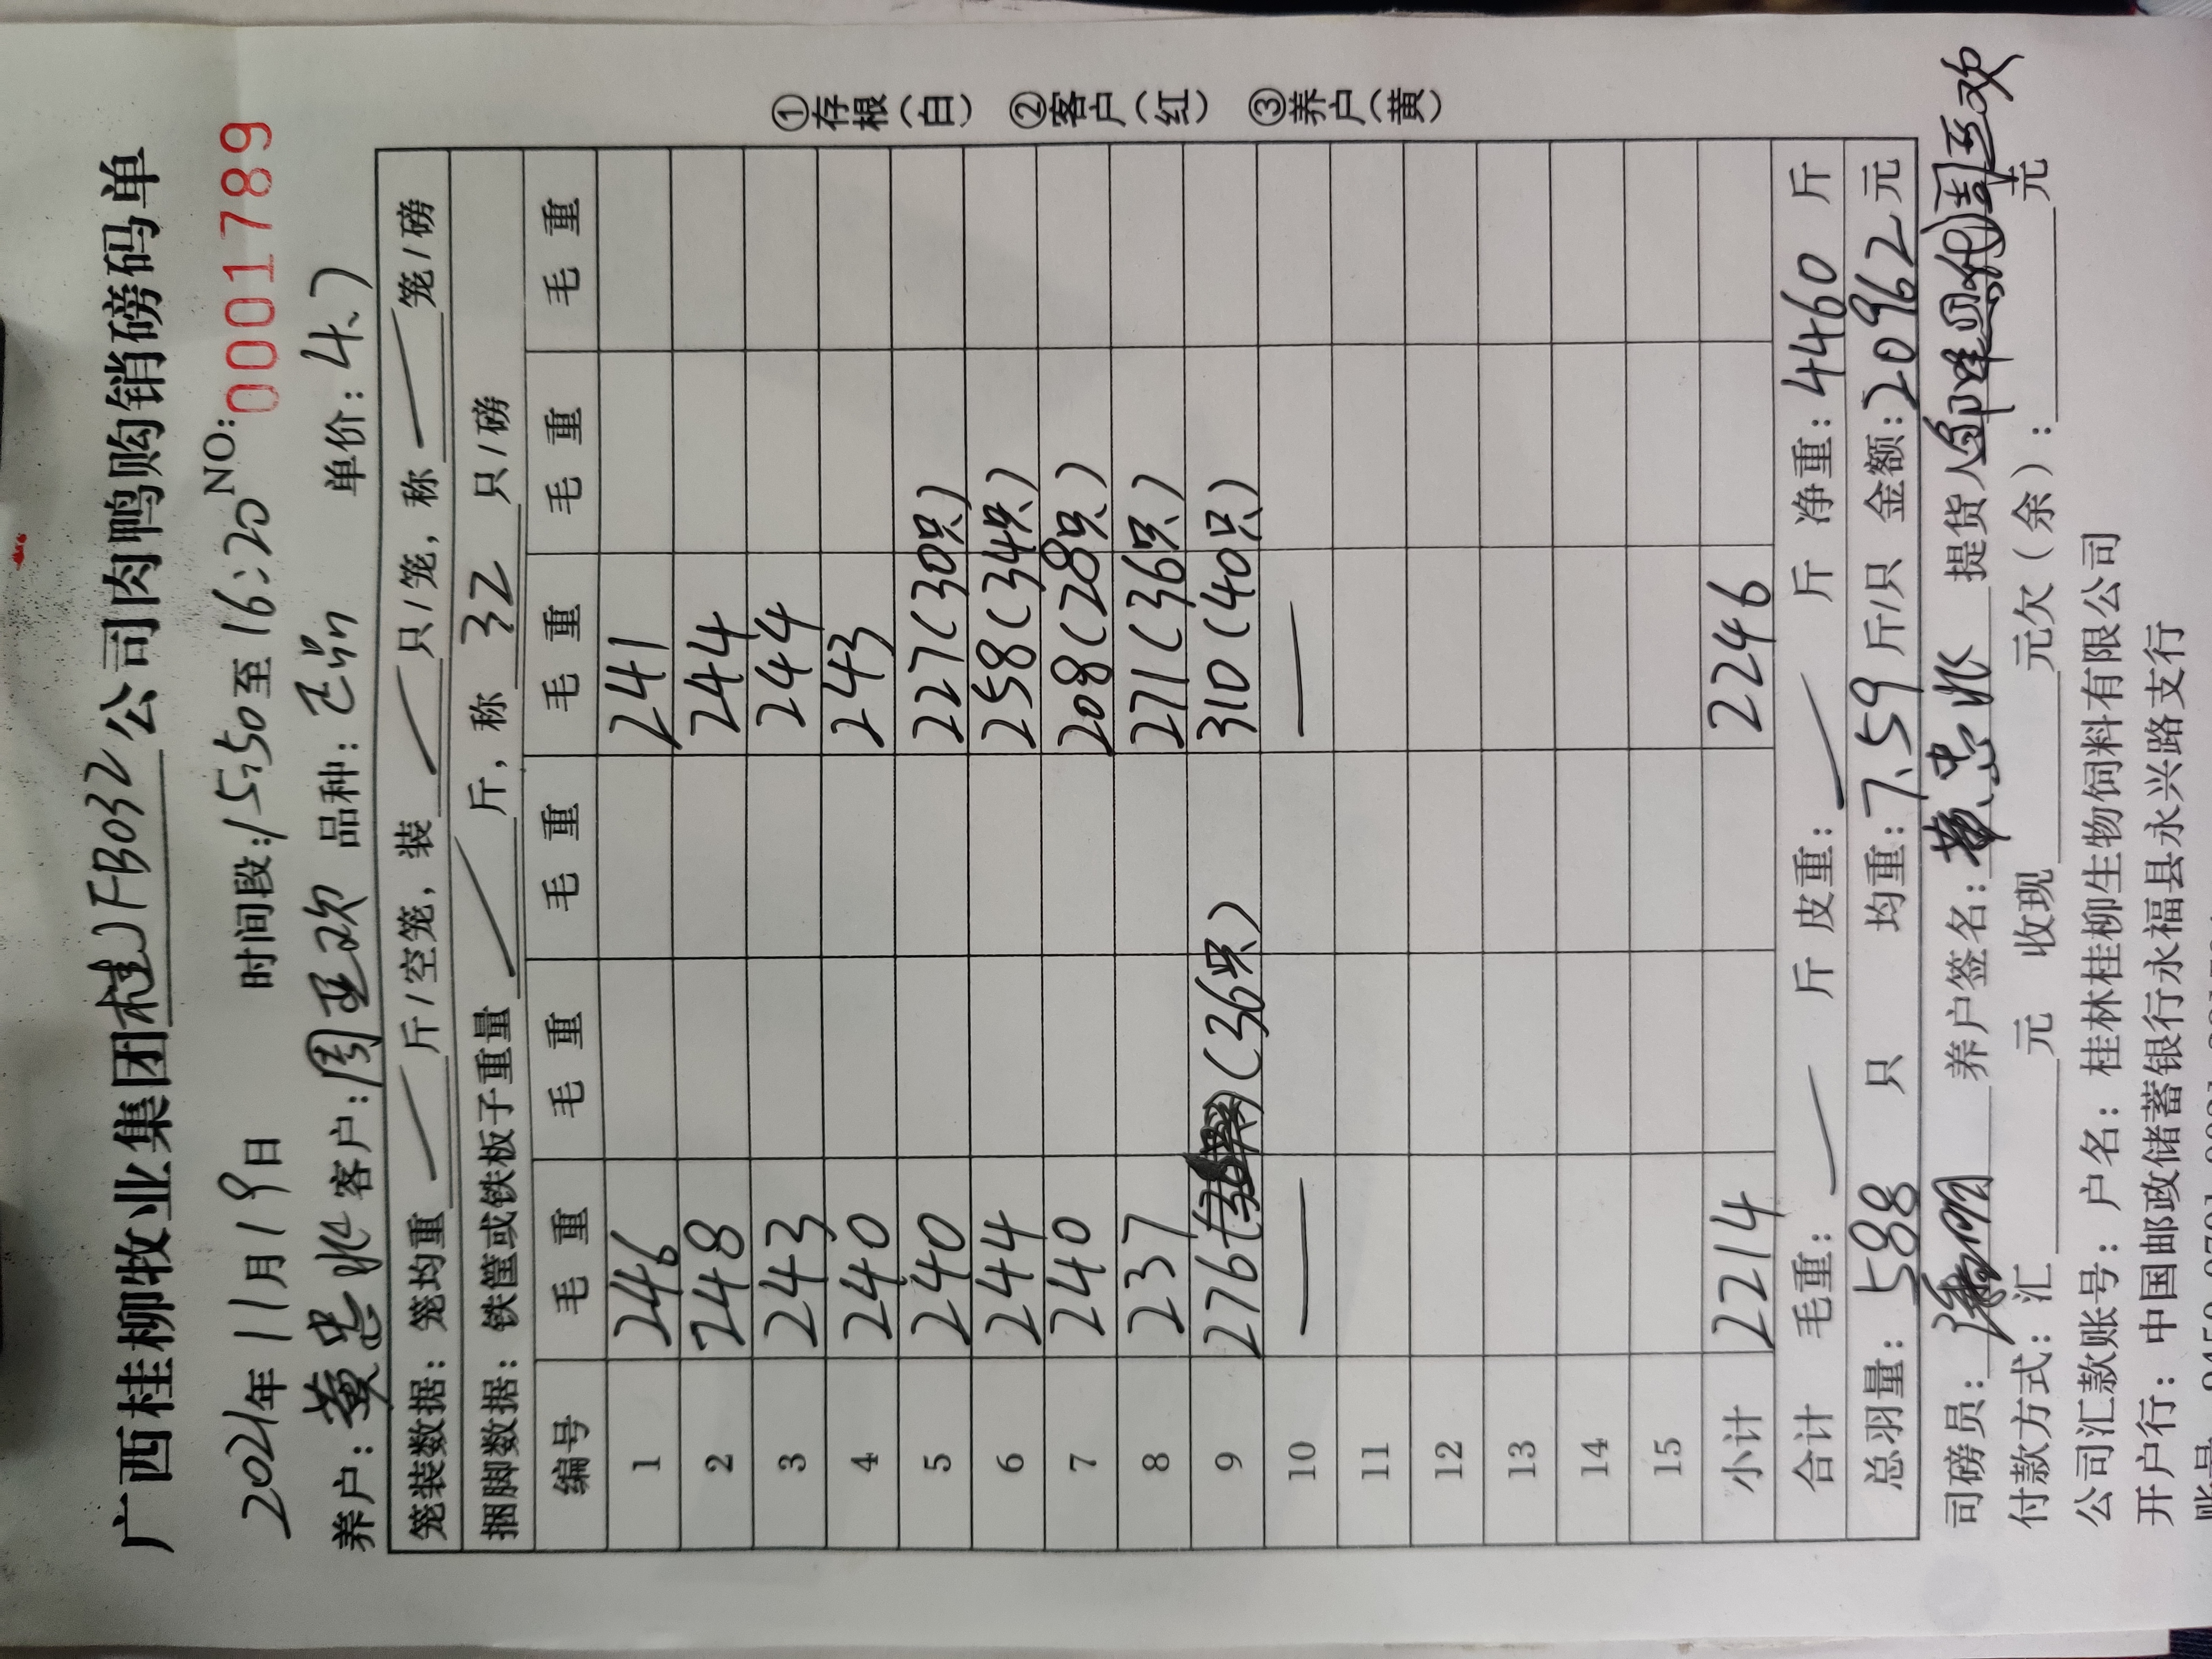 广西桂柳牧业集团桂JFB032公司肉鸭购销磅码单
2021年11月19日 时间段:15:50至16:20 NO:0001789
养户:黄忠兆 客户:周亚欢 品种: 单价:4.7
笼装数据:笼均重 斤/空笼,装 只/笼,称 笼/磅
捆脚数据:铁筐或铁板子重量 斤,称 32 只/磅
编号 毛重 毛重 毛重 毛重 毛重 毛重
1 246 241
2 248 244
3 243 244
4 240 243
5 240 227(30只)
6 244 258(34只)
7 240 208(28只)
8 237 271(36只)
9 276 (36只) 310(40只)
10 — —
11
12
13
14
15
小计 2214 2246
合计 毛重: 斤 皮重: 斤 净重:4460 斤
总羽量:588 只 均重:7.59 斤/只 金额:20962元
司磅员: 养户签名:黄忠兆 提货人 周亚欢
付款方式:汇 元 收现 元欠(余): 元
公司汇款账号:户名:桂林桂柳生物饲料有限公司
开户行:中国邮政储蓄银行永福县永兴路支行
①存根(白) ②客户(红) ③养户(黄)